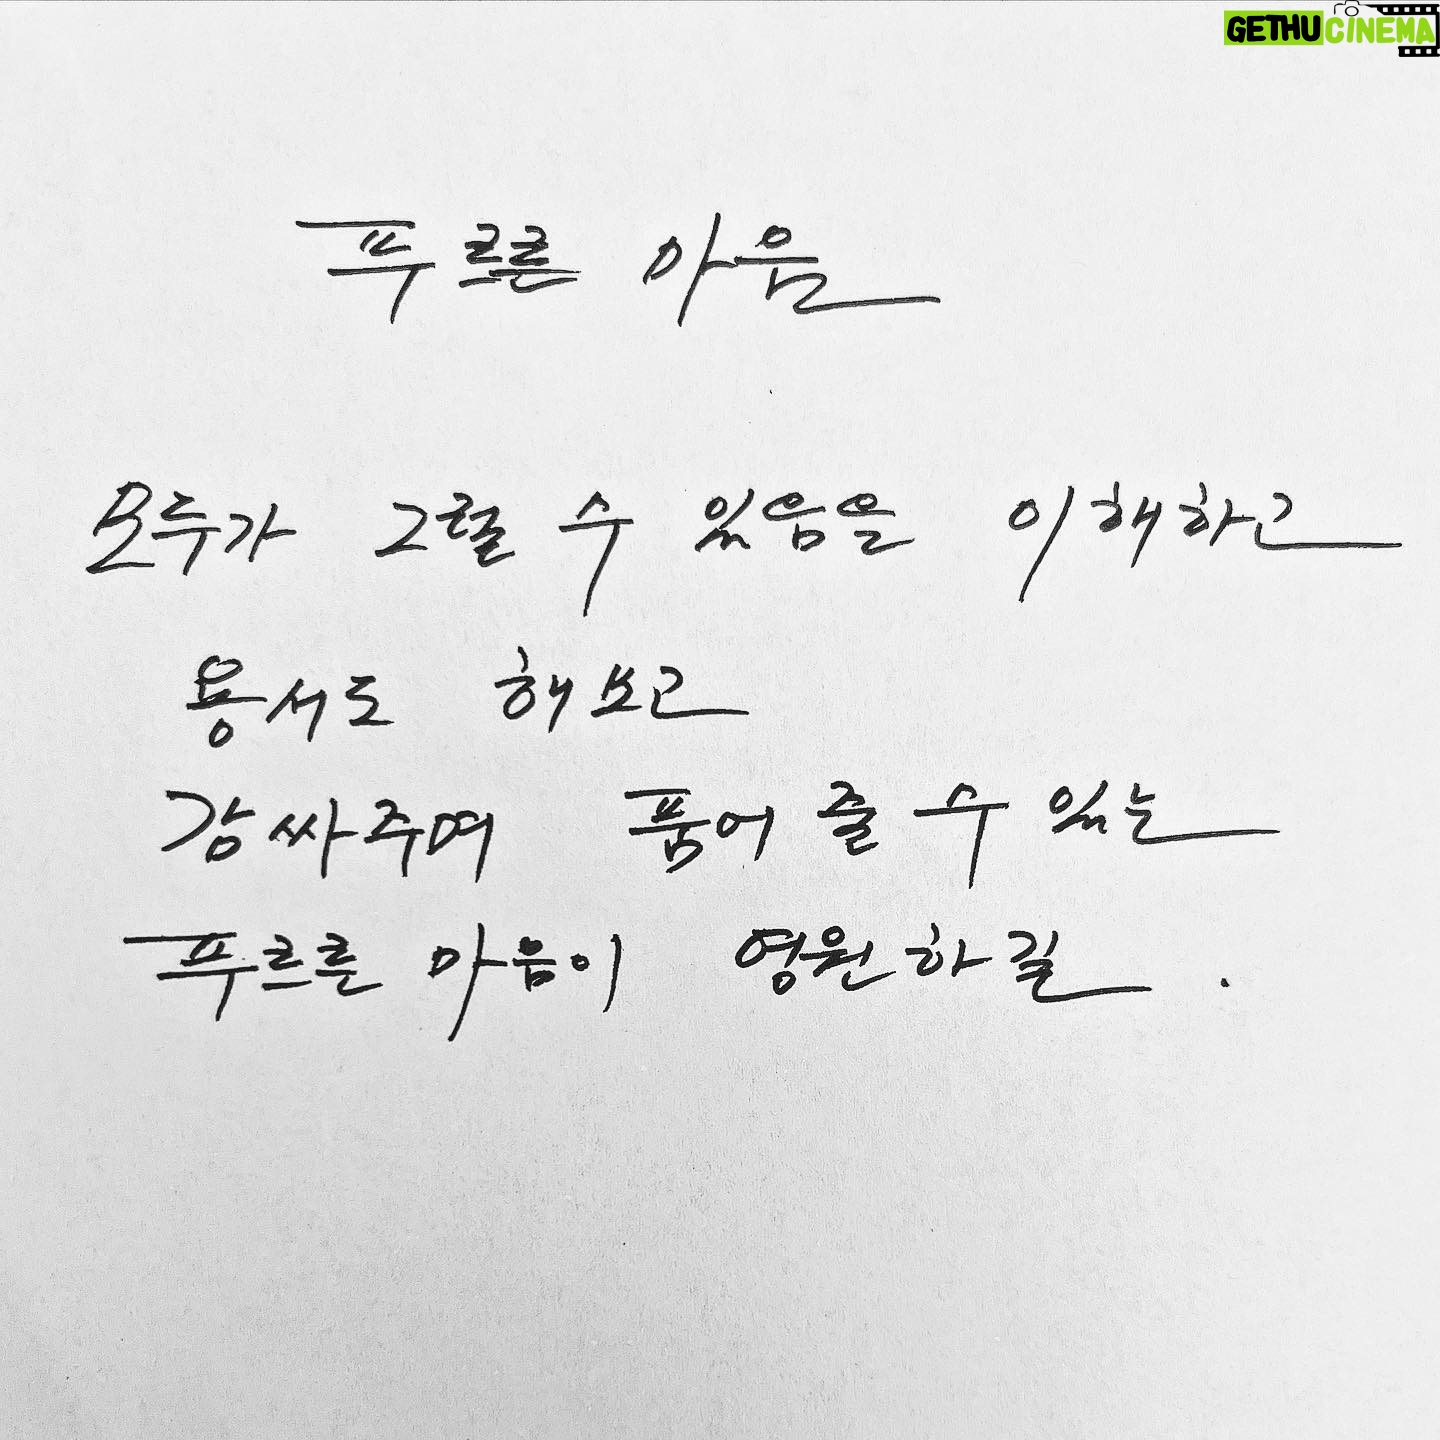 GETHUCINEMA
푸르른 마음
모두가 그럴 수 있음을 이해하고
용서도 해보고
감싸주며 품어 줄 수 있는
푸르른 마음이 영원하길.